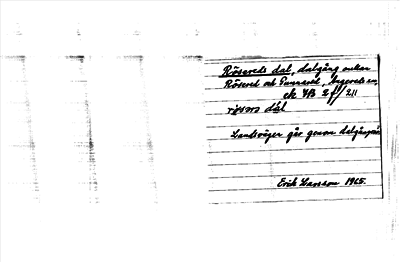 Rösereds dal, dalgång mellan
Rösered och Gunnared, Angereds sn,
ek 7B 2f/211
dal
Landsvägen går genom dalgången
Erik Larsson 1965.